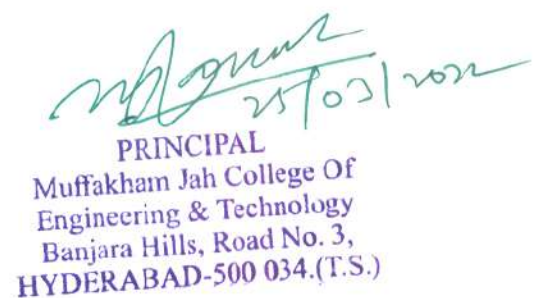 25/03/2022
PRINCIPAL
Muffakham Jah College Of
Engineering & Technology
Banjara Hills, Road No. 3,
HYDERABAD-500 034.(T.S.)